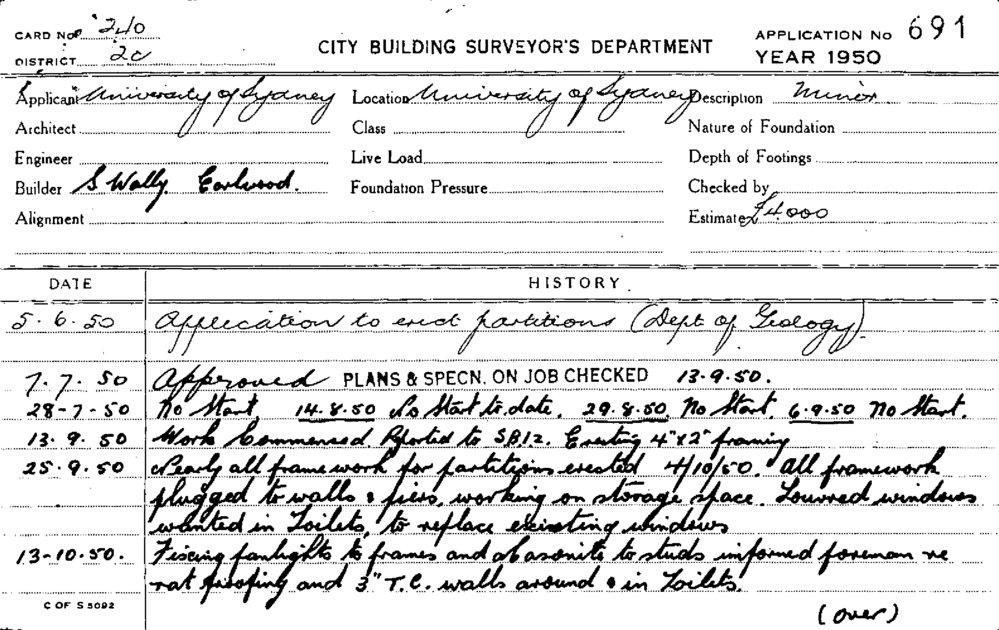 CARD No. 240
DISTRICT 2c
CITY BUILDING SURVEYOR'S DEPARTMENT
APPLICATION No 691
YEAR 1950
Applicant University of Sydney Location University of Sydney Description Minor
Architect Class Nature of Foundation
Engineer Live Load Depth of Footings
Builder S Wally Earlwood. Foundation Pressure Checked by
Alignment Estimate £4000
DATE HISTORY
5.6.50 Application to erect partitions (Dept of Geology).
7.7.50 Approved PLANS & SPECN. ON JOB CHECKED 13.9.50.
28-7-50 No Start, 14.8.50 No Start to date. 29.8.50 No Start. 6.9.50 No Start.
13.9.50 Work Commenced. Reported to S.B.12. Erecting 4"x2" framing
25.9.50 Nearly all frame work for partitions erected 4/10/50. all framework
plugged to walls & piers, working on storage space. Louvred windows
wanted in Toilets, to replace existing windows
13-10-50. Fixing fanlights to frames and Masonite to studs informed foreman re
rat proofing and 3" T.C. walls around & in Toilets.
C OF S 5092
(over)